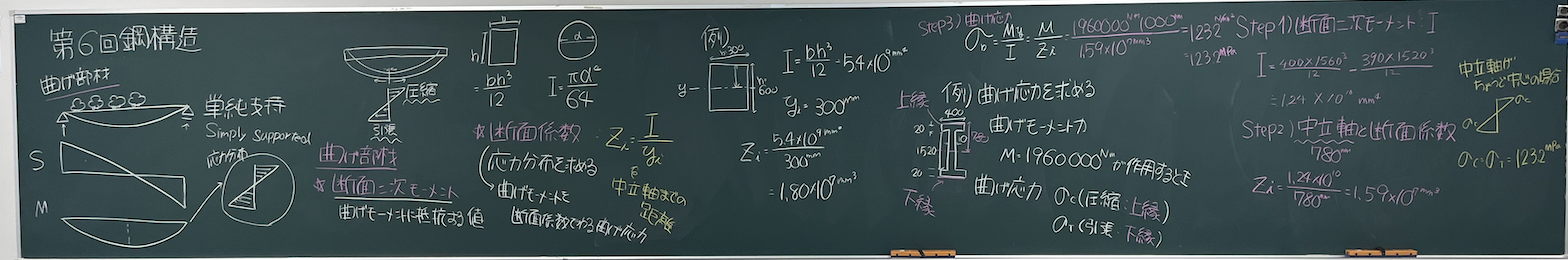 第6回鋼構造
曲げ部材
単純支持
Simply supported
応力分布
S
M
圧縮
引張
曲げ部材
☆断面二次モーメント
曲げモーメントに抵抗する値
h
bh³/12
d
I=πd⁴/64
☆断面係数
応力分布を求める
曲げモーメントを
断面係数でわる曲げ応力
Zi=I/yi
中立軸までの
距離
例)
b=300
h=600
y
I=bh³/12=5.4×10⁹mm⁴
yi=300mm
Zi=5.4×10⁹mm⁴/300mm
=1.80×10⁷mm³
Step3)曲げ応力
σb=My/I=M/Zi=1960000Nm・1000mm/1.59×10⁷mm³=123.2N/mm²
=123.2MPa
例)曲げ応力を求める
曲げモーメント力
M=1960000Nmが作用するとき
曲げ応力 σc(圧縮:上縁)
σT(引張 下縁)
上縁
400
20
1520
20
780
下縁
Step1)断面二次モーメント:I
I=400×1560³/12-390×1520³/12
=1.24×10¹⁰mm⁴
Step2)中立軸と断面係数
780mm
Zi=1.24×10¹⁰/780mm=1.59×10⁷mm³
中立軸が
ちょうど中心の場合
σc
σc=σT=123.2MPa